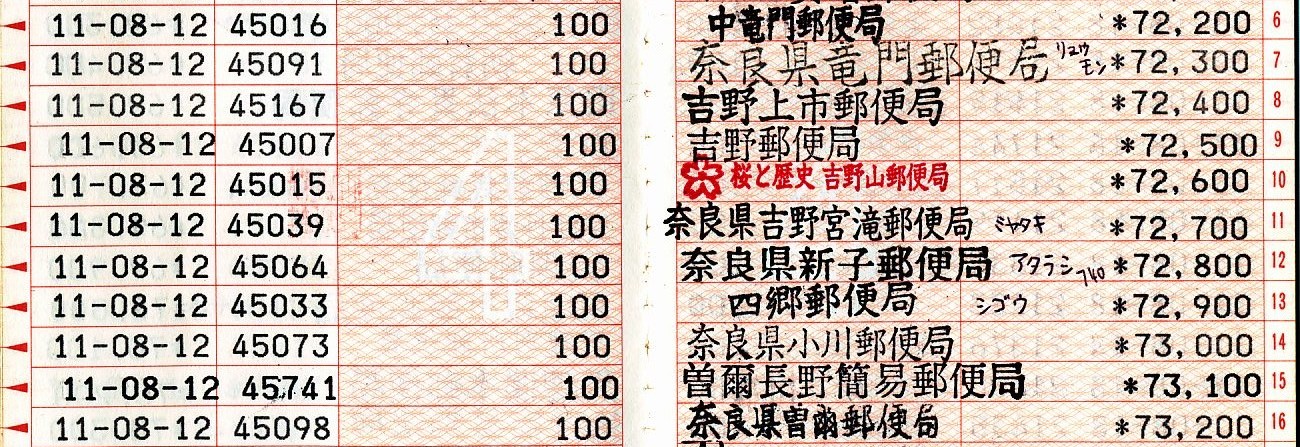 11-08-12 45016 100 中竜門郵便局 *72,200 6
11-08-12 45091 100 奈良県竜門郵便局 リュウモン *72,300 7
11-08-12 45167 100 吉野上市郵便局 *72,400 8
11-08-12 45007 100 吉野郵便局 *72,500 9
11-08-12 45015 100 桜と歴史 吉野山郵便局 *72,600 10
11-08-12 45039 100 奈良県吉野宮滝郵便局 ミヤタキ *72,700 11
11-08-12 45064 100 奈良県新子郵便局 アタラシ *72,800 12
11-08-12 45033 100 四郷郵便局 シゴウ *72,900 13
11-08-12 45073 100 奈良県小川郵便局 *73,000 14
11-08-12 45741 100 曽爾長野簡易郵便局 *73,100 15
11-08-12 45098 100 奈良県曽爾郵便局 *73,200 16